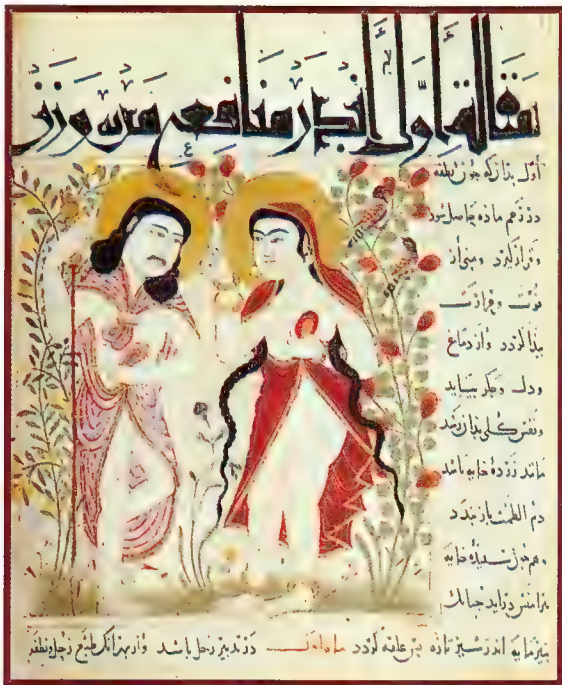 مقالة اول اندر منافع مردم وزن
أول بدانك چون نطفه
در رحم ماده حاصل شود
و قرار گیرد
قوت و حرارت
گردد و از دماغ
ودل و جگر بیاید
ونفس کلی بدان رسد
مانند زرده خایه باشد
دم الطمث باز بندد
همچون سپیده خایه
درآید چنانك
پنیرمایه اندر شیر تازه پس علقه گردد ماه اول در تدبیر زحل باشد و از بهر آنك طبع زحل و نطفه